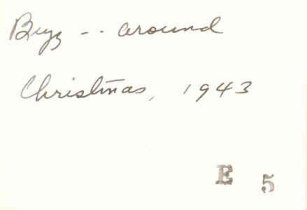 Buzz -- around
Christmas, 1943
E 5